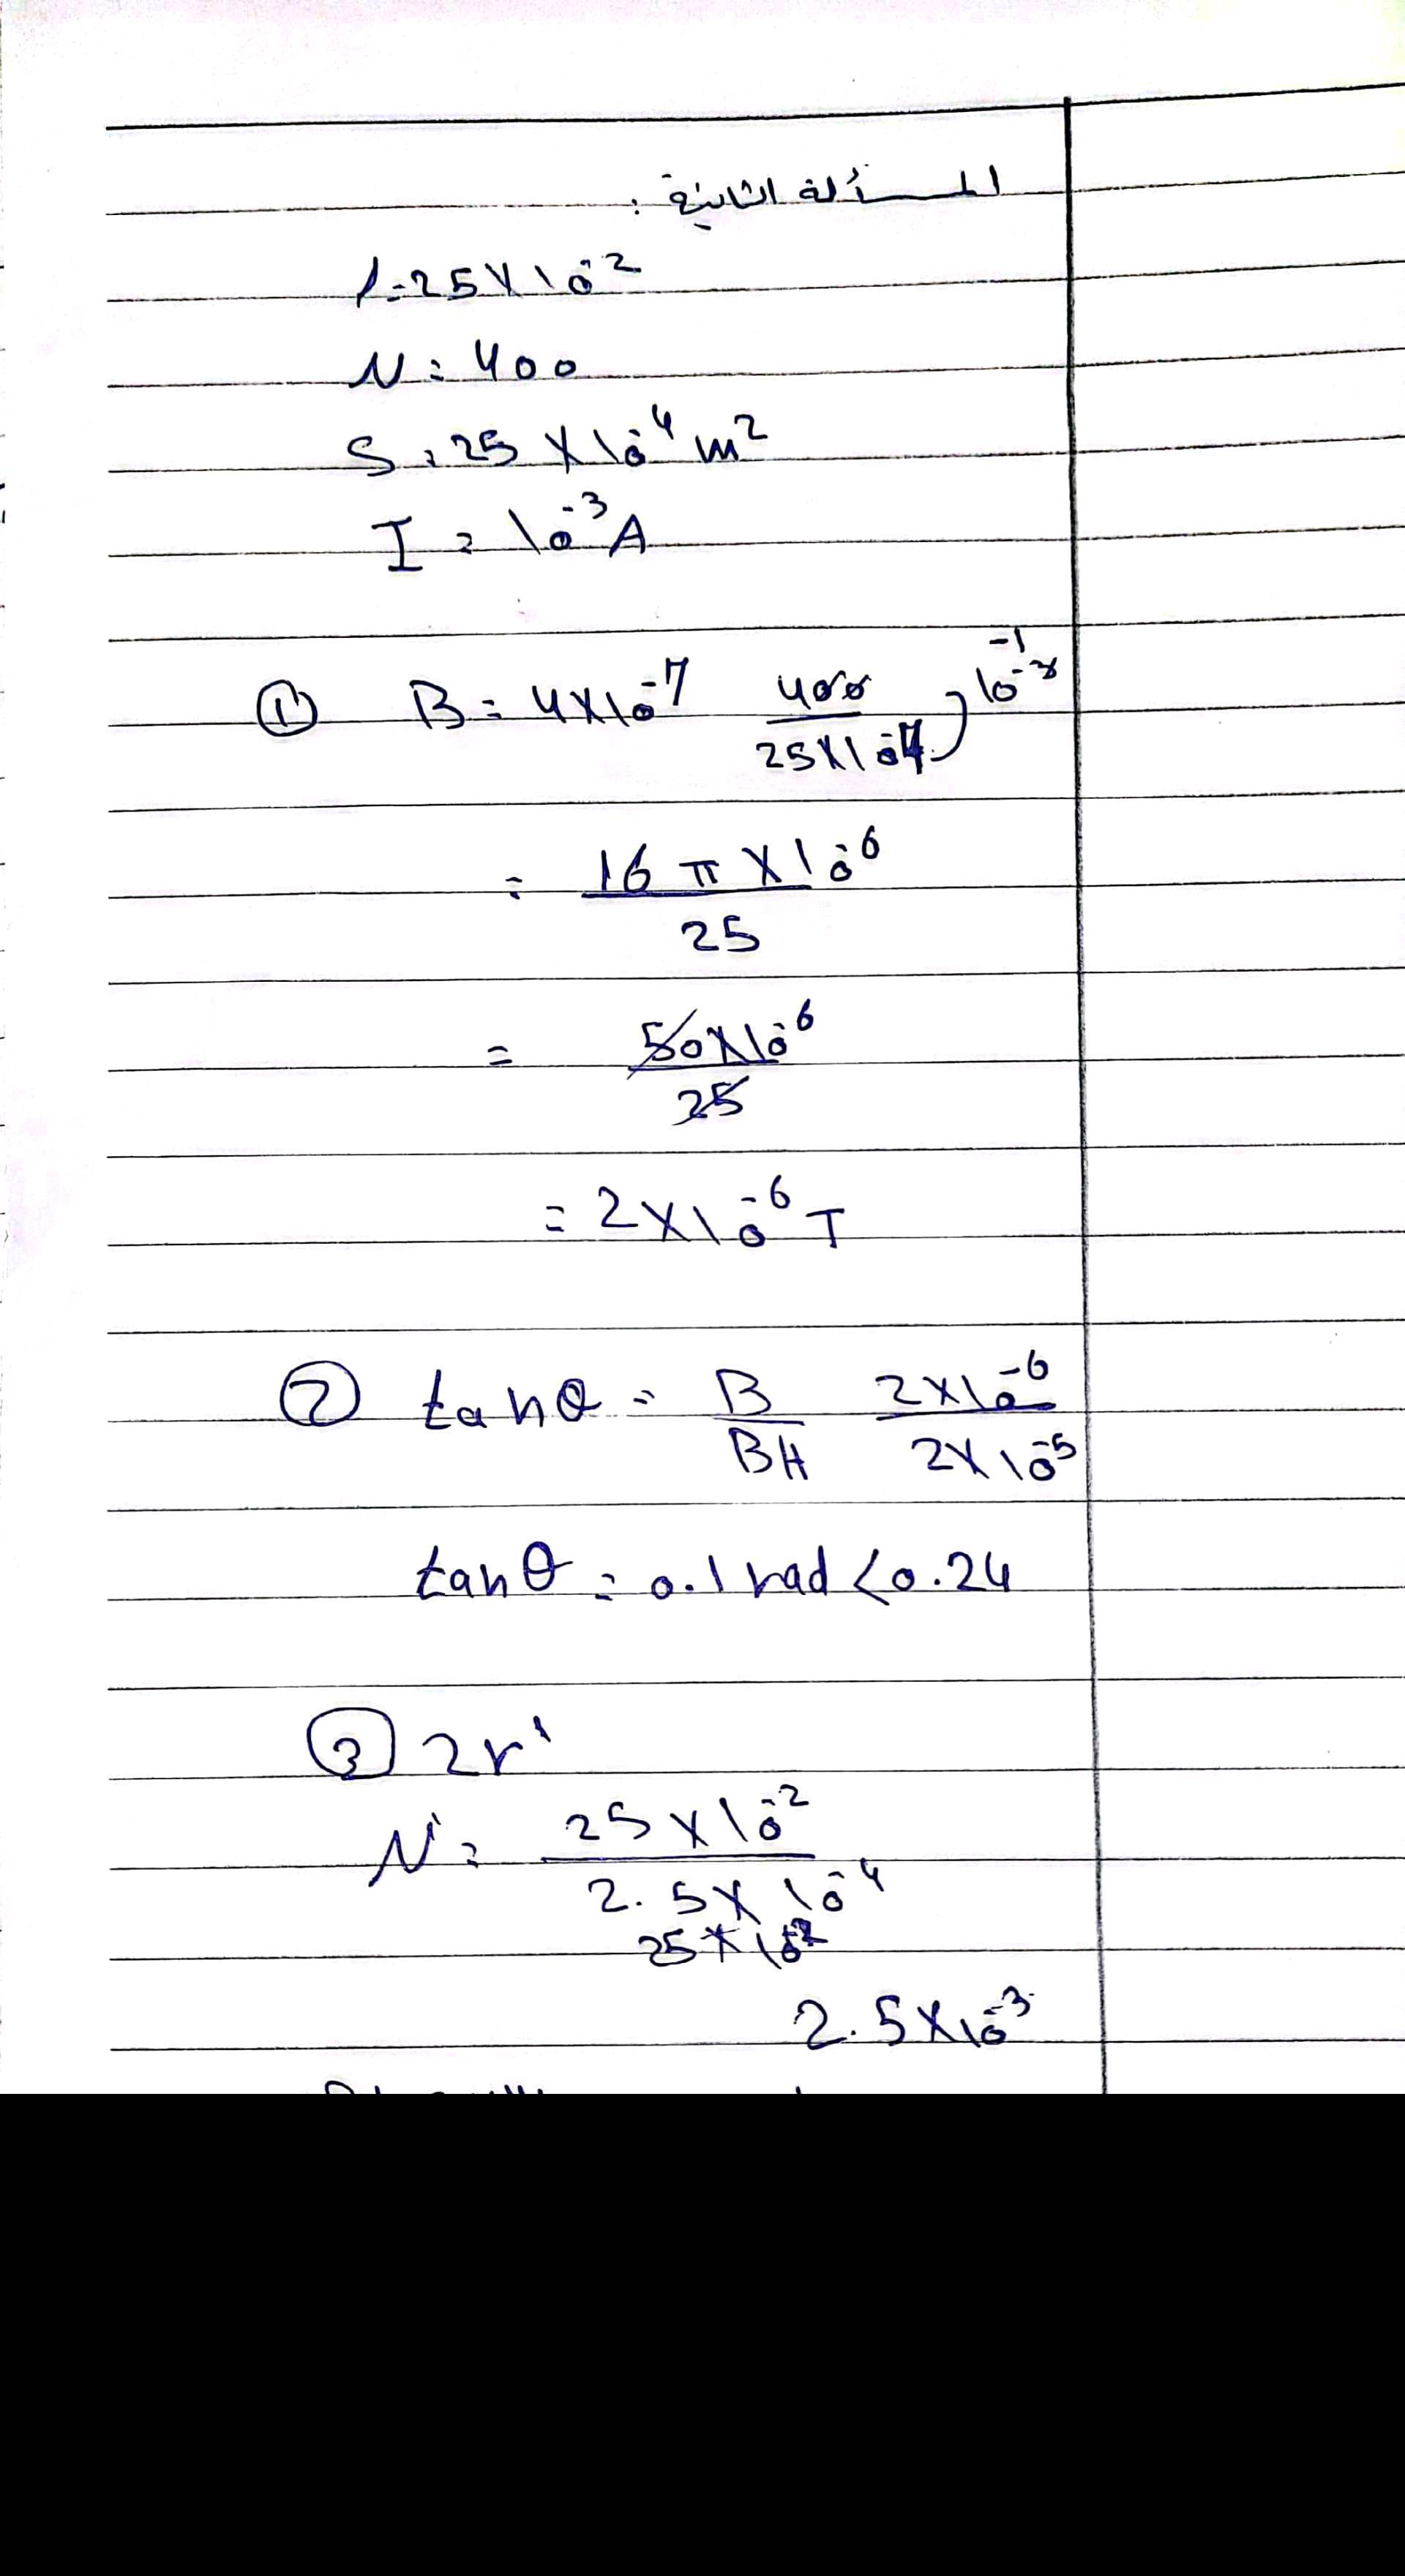 المسألة الثانية :
l = 25 × 10⁻²
N = 400
S = 25 × 10⁻⁴ m²
I = 10⁻³ A
① B = 4 × 10⁻⁷ 400 / 25 × 10⁻⁴ ) 10⁻³ ⁻¹
= 16 π × 10⁻⁶ / 25
= 50 × 10⁻⁶ / 25
= 2 × 10⁻⁶ T
② tan θ = B / BH 2 × 10⁻⁶ / 2 × 10⁻⁵
tan θ = 0.1 rad < 0.24
③ 2r'
N' = 25 × 10⁻² / 2.5 × 10⁻⁴
25 × 10⁻²
2.5 × 10⁻³